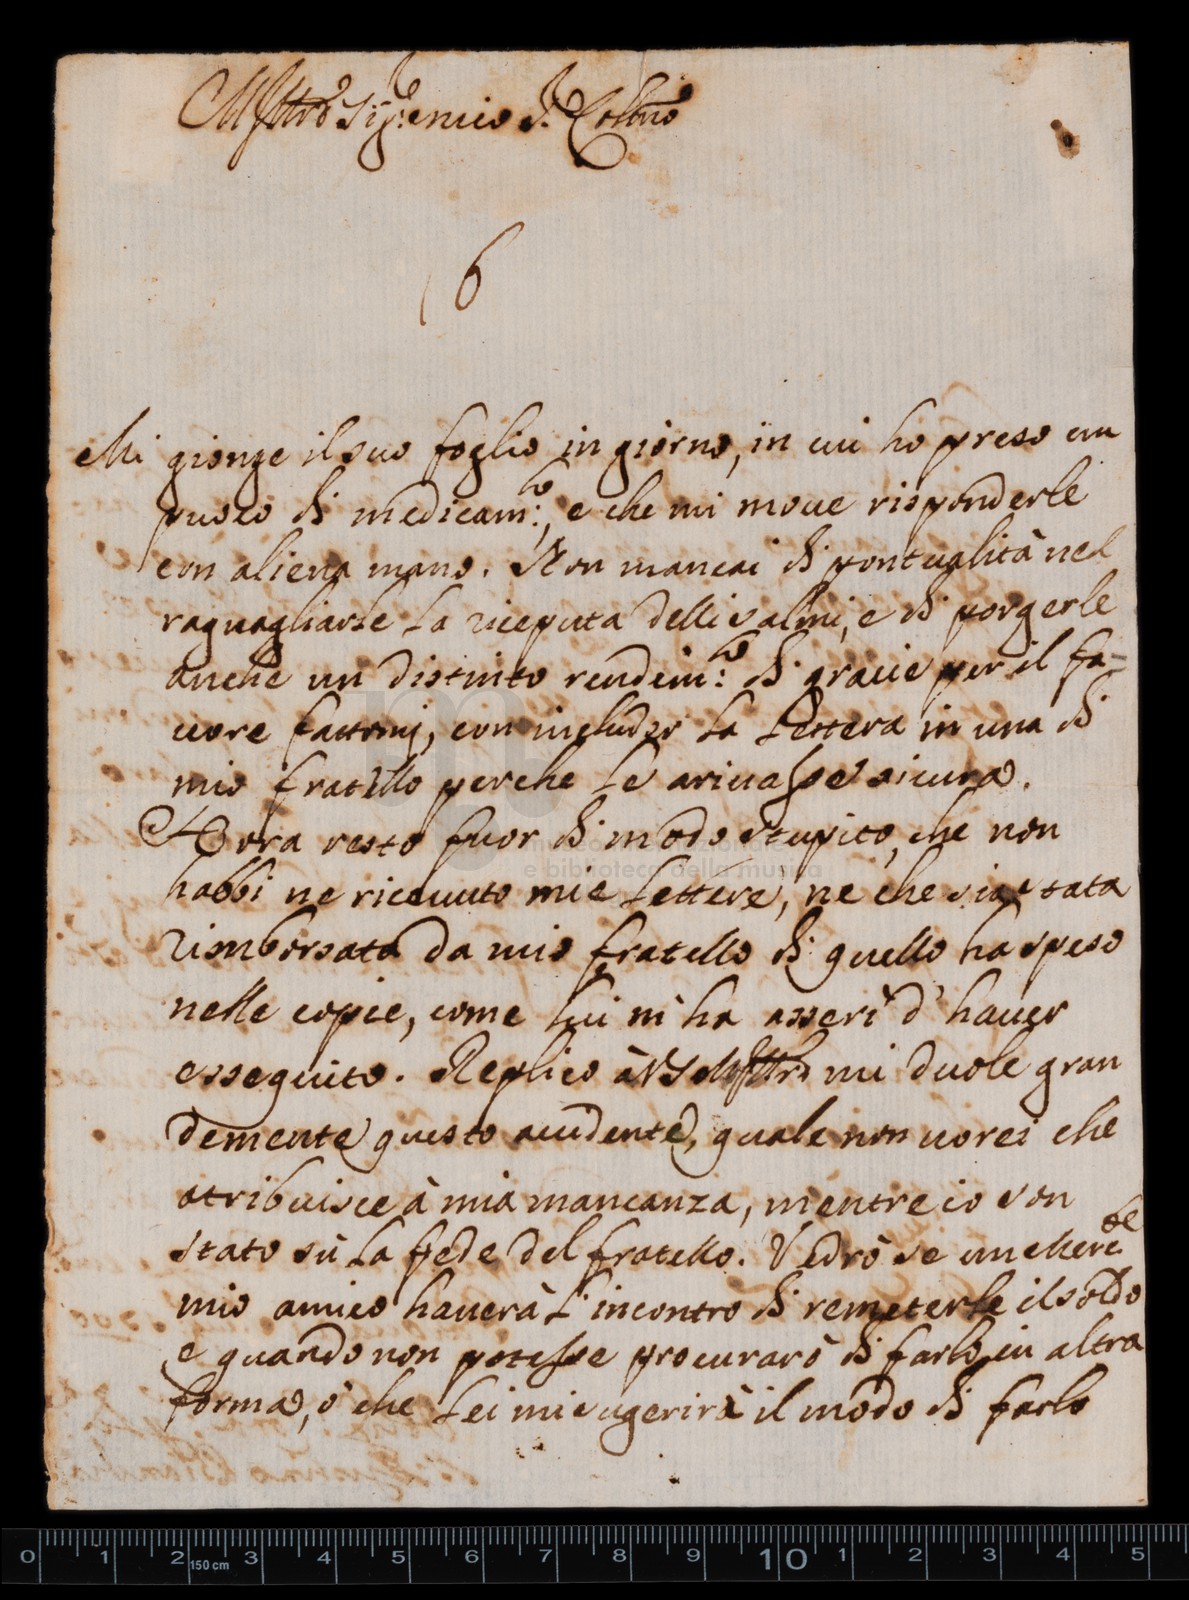 M Illtre Sig:r mio P. Collmo
6
Mi gionge il suo foglio in giorno, in cui ho preso un
puoco di medicam:to, e che mi moue risponderle
con aliena mano. Non mancai di pontualità nel
raguagliarle la riceputa delli salmi, e di porgerle
anche un distinto rendim:to di gracie per il fa=
uore fattomi, con includer la lettera in una di
mio fratello perche le ariuasse sicura.
Hora resto fuor di modo stupito, che non
habbi ne riceuuto mie lettere, ne che sia stata
rimborsata da mio fratello di quello ha speso
nelle copie, come lui m'ha asserì d'hauer
esseguito. Replico à VS M Illtre mi duole gran
demente questo accidente, quale non uorei che
atribuisce à mia mancanza, mentre io son
stato sù la fede del fratello. Vedrò se un
mio amico hauerà l'incontro di remeterle il soldo
e quando non potesse procurarò di farlo in altra
forma, ò che lei mi sugerirà il modo di farlo
museo
e biblioteca della musica
0 1 2 3 4 5 6 7 8 9 10 1 2 3 4 5
150 cm